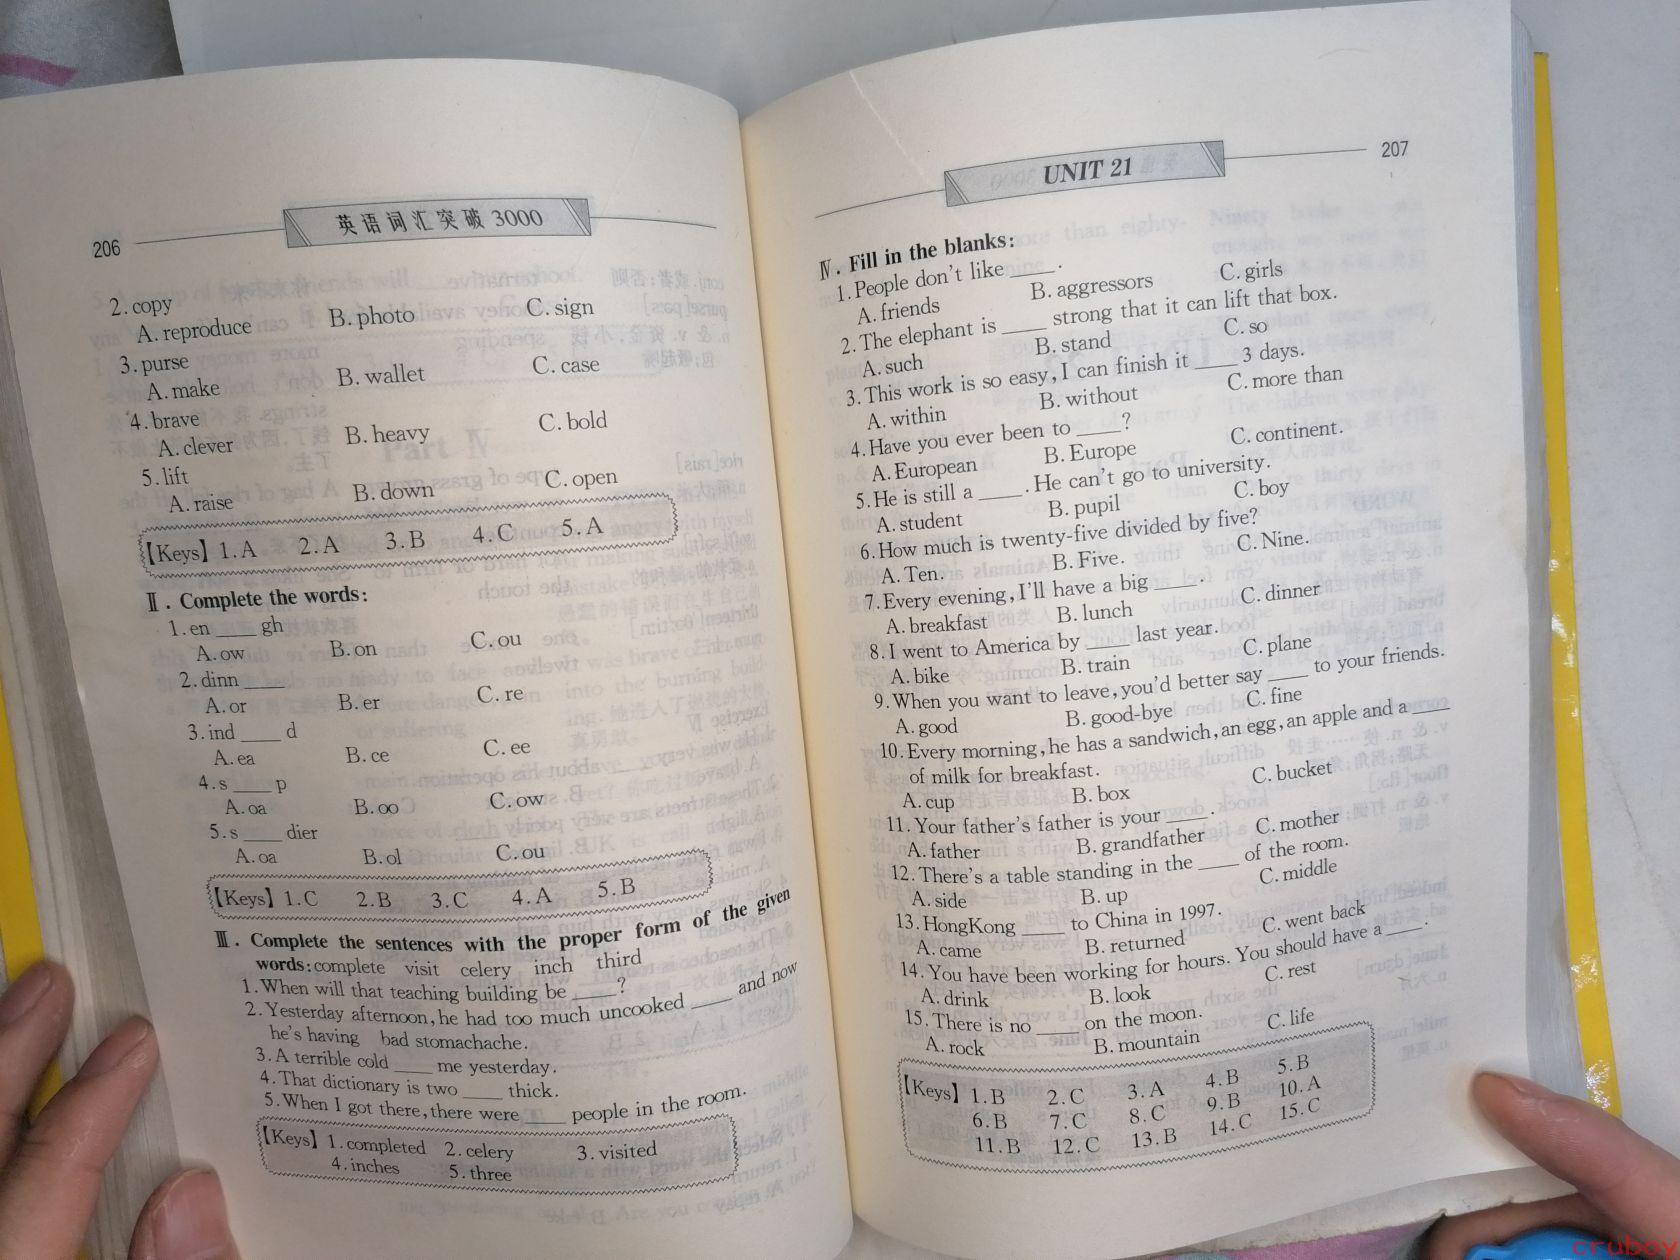 206
英语词汇突破 3000
2. copy
A. reproduce B. photo C. sign
3. purse
A. make B. wallet C. case
4. brave
A. clever B. heavy C. bold
5. lift
A. raise B. down C. open
【Keys】1. A 2. A 3. B 4. C 5. A
Ⅱ. Complete the words:
1. en ____ gh
A. ow B. on C. ou
2. dinn ____
A. or B. er C. re
3. ind ____ d
A. ea B. ce C. ee
4. s ____ p
A. oa B. oo C. ow
5. s ____ dier
A. oa B. ol C. ou
【Keys】1. C 2. B 3. C 4. A 5. B
Ⅲ. Complete the sentences with the proper form of the given
words: complete visit celery inch third
1. When will that teaching building be ____?
2. Yesterday afternoon, he had too much uncooked ____ and now
he's having bad stomachache.
3. A terrible cold ____ me yesterday.
4. That dictionary is two ____ thick.
5. When I got there, there were ____ people in the room.
【Keys】1. completed 2. celery 3. visited
4. inches 5. three
UNIT 21
207
Ⅳ. Fill in the blanks:
1. People don't like ____.
A. friends B. aggressors C. girls
2. The elephant is ____ strong that it can lift that box.
A. such B. stand C. so
3. This work is so easy, I can finish it ____ 3 days.
A. within B. without C. more than
4. Have you ever been to ____?
A. European B. Europe C. continent.
5. He is still a ____. He can't go to university.
A. student B. pupil C. boy
6. How much is twenty-five divided by five?
A. Ten. B. Five. C. Nine.
7. Every evening, I'll have a big ____.
A. breakfast B. lunch C. dinner
8. I went to America by ____ last year.
A. bike B. train C. plane
9. When you want to leave, you'd better say ____ to your friends.
A. good B. good-bye C. fine
10. Every morning, he has a sandwich, an egg, an apple and a ____
of milk for breakfast.
A. cup B. box C. bucket
11. Your father's father is your ____.
A. father B. grandfather C. mother
12. There's a table standing in the ____ of the room.
A. side B. up C. middle
13. HongKong ____ to China in 1997.
A. came B. returned C. went back
14. You have been working for hours. You should have a ____.
A. drink B. look C. rest
15. There is no ____ on the moon.
A. rock B. mountain C. life
【Keys】1. B 2. C 3. A 4. B 5. B
6. B 7. C 8. C 9. B 10. A
11. B 12. C 13. B 14. C 15. C
cruboy